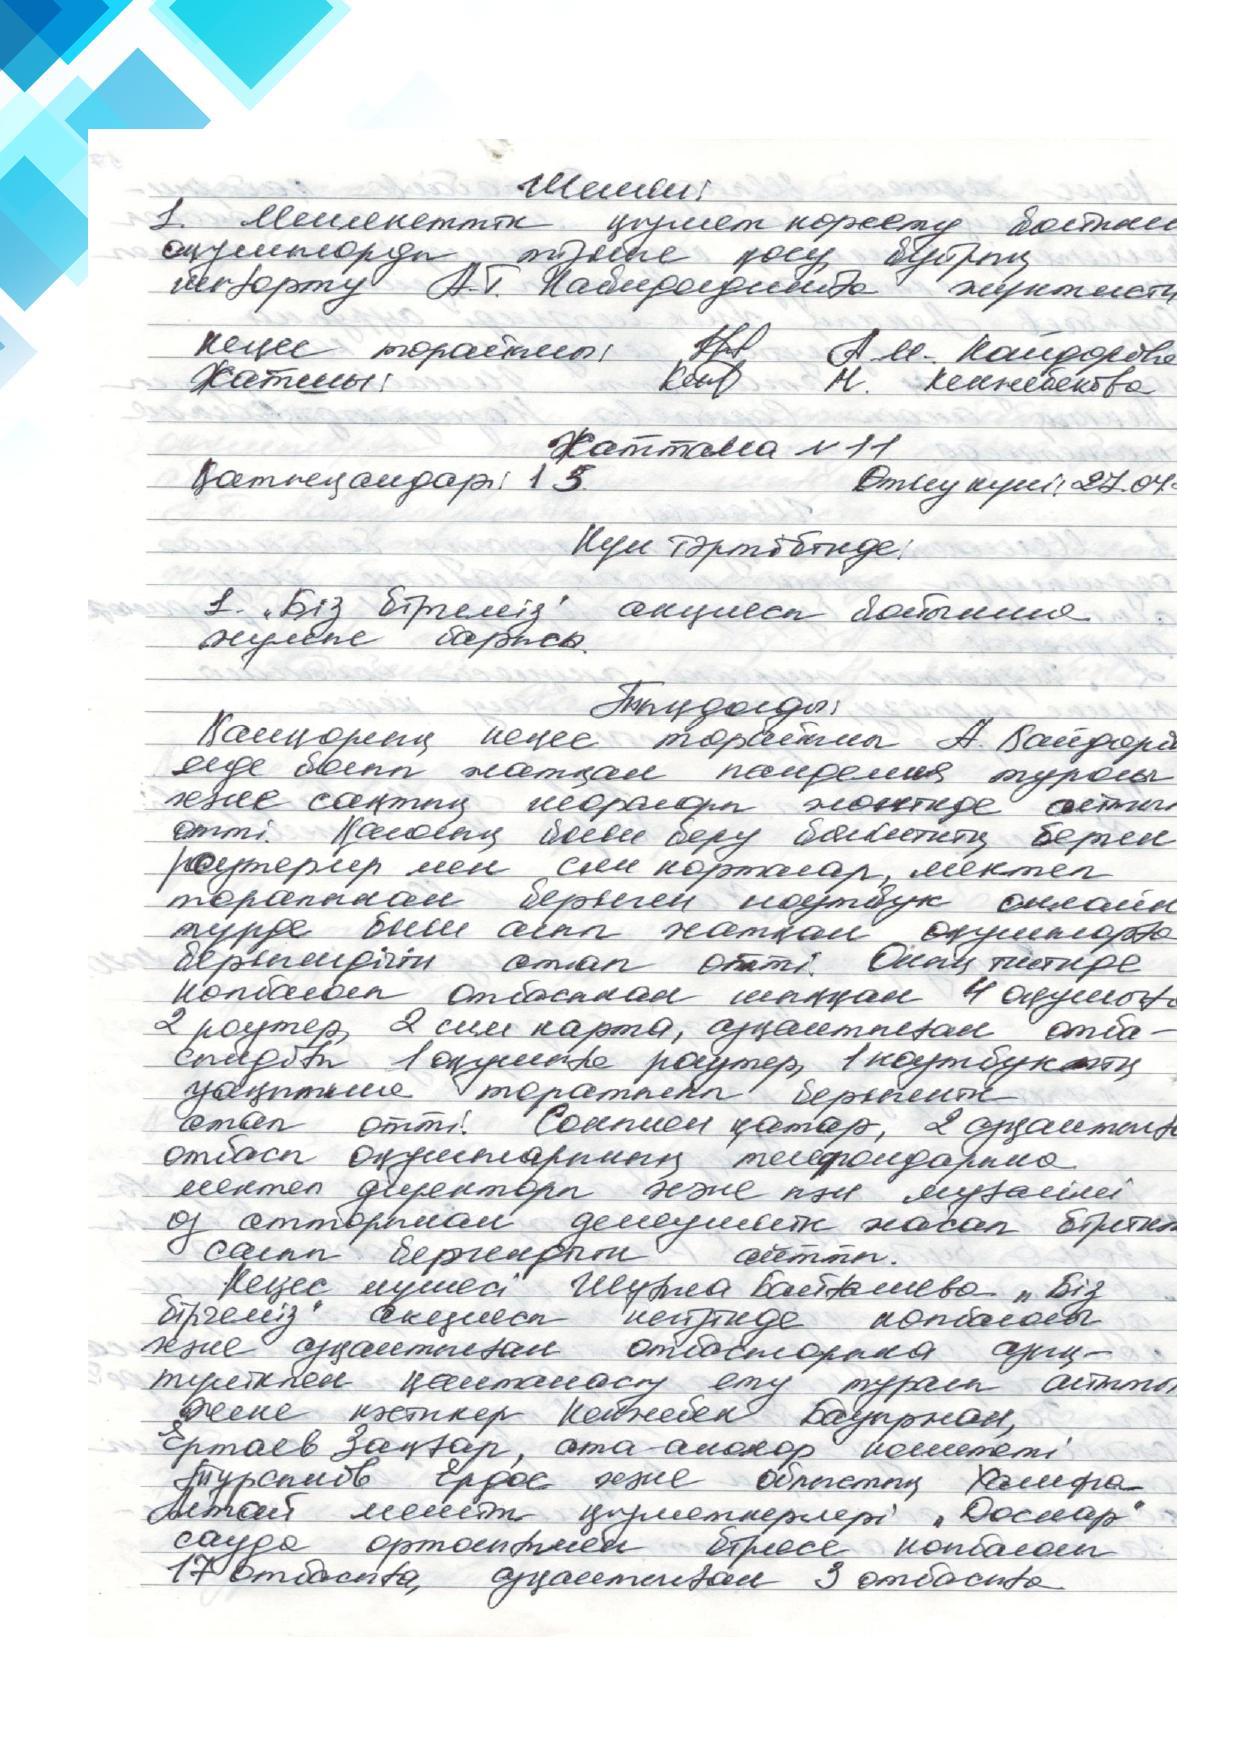 Шешімі:
1. Мемлекеттік қызмет көрсету бойынша
оқушыларды тізімге қосу, бұйрық
шығарту А.Т. жүктелсін
Кеңес төрайымы: А.М. Қайдарова
Хатшы: Н. Кенжебекова
Хаттама №11
Қатысқандар: 15 Өткізу күні: 27.04.
Күн тәртібінде:
1. "Біз біргеміз" акциясы бойынша
жүргізу барысы.
Тыңдалды:
Қамқорлық кеңес төрайымы А. Қайдаро
елде болып жатқан пандемия туралы
және сақтық шаралары жөнінде айтып
өтті. Қаланың білім беру бөлімінің берген
роутерлер мен сим карталар, мектеп
тарапынан берілген ноутбук онлайн
түрде білім алып жатқан оқушыларға
берілгендігін атап өтті. Оның ішінде
көпбалалы отбасынан шыққан 4 оқушыға
2 роутер, 2 сим карта, қамтылған отба-
сындағы 1 оқушыға роутер, 1 ноутбуктің
уақытша таратылып берілгенін
атап өтті. Сонымен қатар, 2
отбасы оқушыларының телефондарына
мектеп директоры және пән мұғалімі
өз аттарынан демеушілік жасап бірлік
салып бергендігін айтты.
Кеңес мүшесі Шұғыла "Біз
біргеміз" акциясы негізінде көпбалалы
және отбасыларына азық-
түлікпен қамтамасыз ету туралы айтты
және кәсіпкер Кенжебек Бауыржан,
Ертаев Заңғар, ата-аналар комитеті
Тұрсынов Ердос және облыстың Халифа
Алтай мешіт қызметкерлері "Достар"
сауда орталығымен бірлесе көпбалалы
17 отбасыға, 3 отбасыға